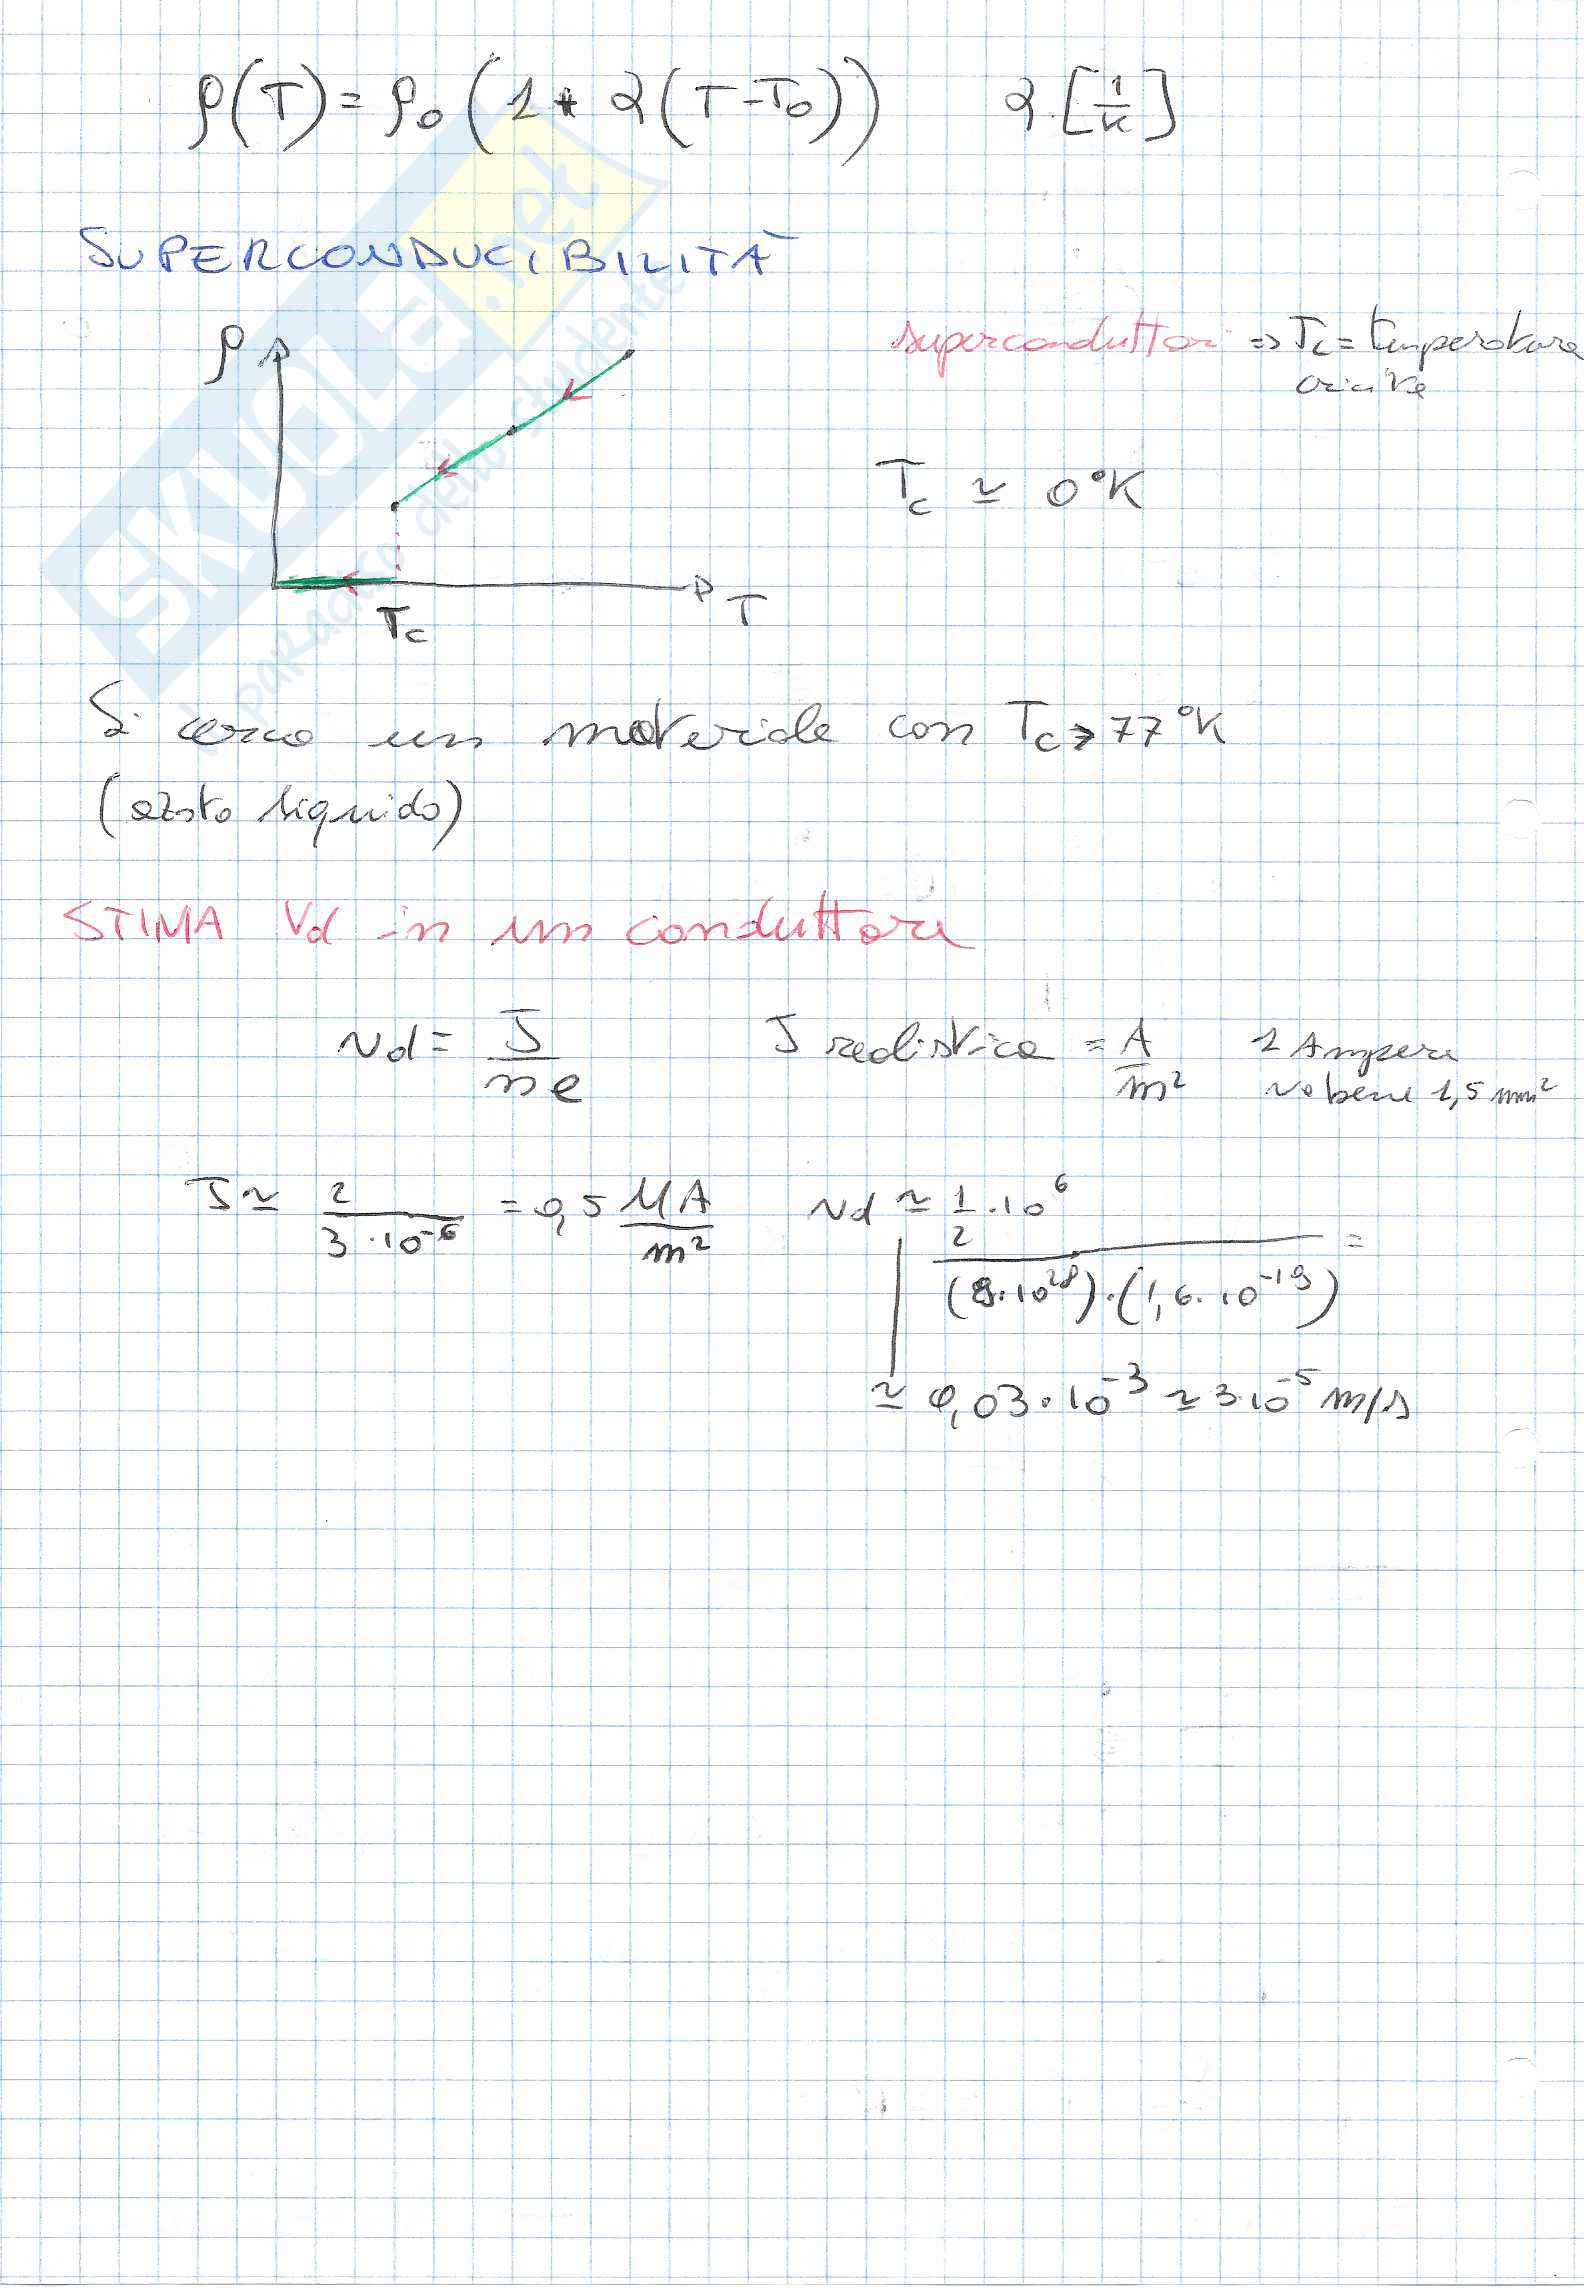 ρ(T) = ρ₀ (1 + α (T - T₀)) α [1/K]
SUPERCONDUCIBILITÀ
ρ
superconduttori => Tc = temperatura
critica
Tc ≃ 0 °K
Tc
T
Si cerca un materiale con Tc > 77 °K
(azoto liquido)
STIMA Vd in un conduttore
vd = J/ne J realistica = A/m² 1 Ampere
va bene 1,5 mm²
J ≃ 2/3·10⁻⁶ = 0,5 MA/m² vd ≃ 1/2·10⁶/(8·10²⁸)·(1,6·10⁻¹⁹) =
≃ 0,03·10⁻³ ≃ 3·10⁻⁵ m/s
SKUOLA.net
il paradiso dello studente